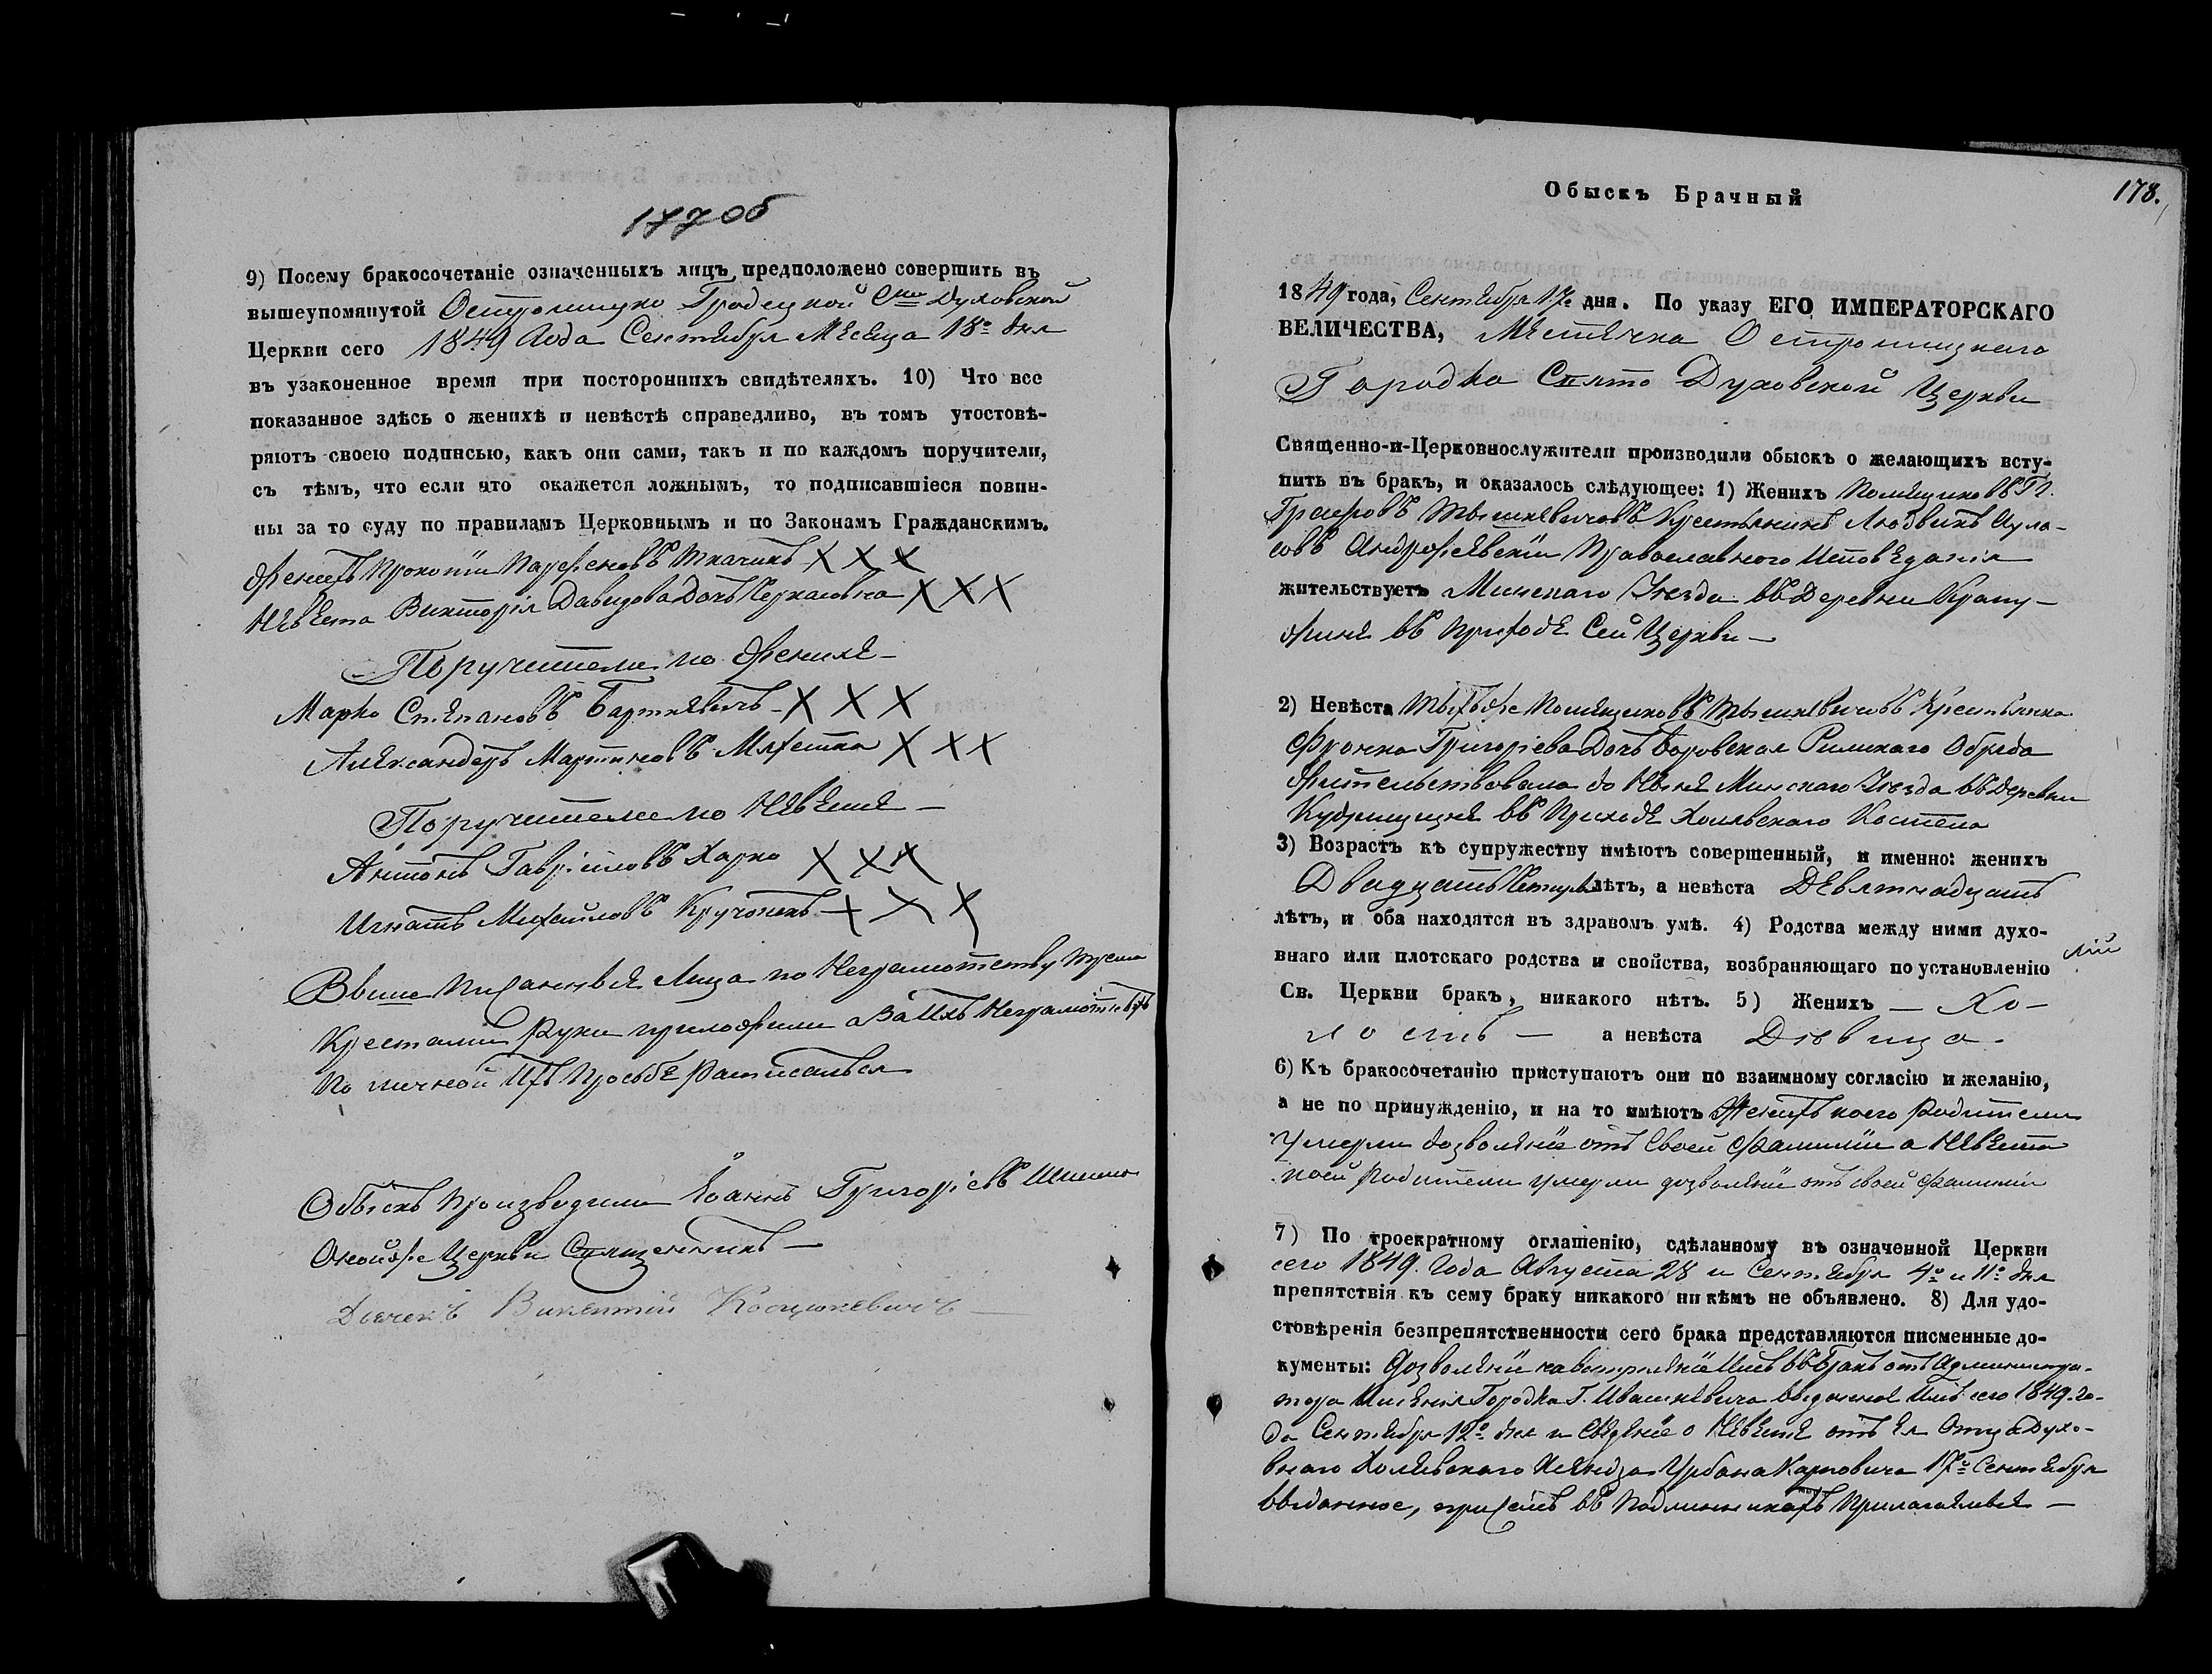 177 об
9) Посему бракосочетаніе означенныхъ лицъ предположено совершить въ
вышеупомянутой Остромицко Градецкой Сто Духовской
Церкви сего 1849 Года Сентября Месяца 18го дня
въ узаконенное время при постороннихъ свидѣтеляхъ. 10) Что все
показанное здѣсь о женихѣ и невѣстѣ справедливо, въ томъ утостовѣ-
ряютъ своею подписью, какъ они сами, такъ и по каждомъ поручители,
съ тѣмъ, что если что окажется ложнымъ, то подписавшіеся повин-
ны за то суду по правиламъ Церковнымъ и по Законамъ Гражданскимъ.
Женихъ Прокопій Парфеновъ Ткачикъ X X X
Невеста Викторія Давидова Дочь X X X
Поручители по Женихе
Марко Степановъ Барткевичъ X X X
Александеръ Мартиновъ X X X
Поручители по Невесте
Антонъ Гавріиловъ Харко X X X
Игнатъ Михайловъ Кручонекъ X X X
Више Писанные Лица по Неграмотству трема
Крестами Руки приложили а За Ихъ Неграмотныхъ
по личной Ихъ Просьбе Расписалься
Обыскъ Производили Іоаннъ Григоріевъ
Оной же Церкви Священникъ
Дьячекъ Викентій Косцюкевичъ
178.
Обыскъ Брачный
1849 года, Сентября 17 дня. По указу ЕГО ИМПЕРАТОРСКАГО
ВЕЛИЧЕСТВА, Местечка Остромицкаго
Городка Свято Духовской Церкви
Священно-и-Церковнослужители производили обыскъ о желающихъ всту-
пить въ бракъ, и оказалось слѣдующее: 1) Женихъ Помещиковъ ГГ.
Графовъ Тышкевичовъ Крестьянинъ Людвикъ
Православного Исповеданія
жительствуетъ Минскаго Уезда въ Деревни Крапу-
жине въ Приходе Сей Церкви
2) Невѣста Тыхъ же Помещиковъ Тышкевичовъ Крестьянка
Франка Григоріева Дочь Боровская Римскаго Обряда
Жительствовала до Ныне Минскаго Уезда въ Деревни
въ Приходе Костела
3) Возрастъ къ супружеству имѣютъ совершенный, и именно: женихъ
Двадцать Четыре лѣтъ, а невѣста Девятнадцать
лѣтъ, и оба находятся въ здравомъ умѣ. 4) Родства между ними духо-
внаго или плотскаго родства и свойства, возбраняющаго по установленію
Св. Церкви бракъ, никакого нѣтъ. 5) Женихъ Хо-
лостъ а невѣста Дѣвица.
6) Къ бракосочетанію приступаютъ они по взаимному согласію и желанію,
а не по принужденію, и на то имѣютъ Женихъ коего Родители
Умерли дозволеніе отъ Своей Фамиліи а Невеста
коей Родители умерли дозволеніе отъ своей Фамиліи
7) По троекратному оглашенію, сдѣланному въ означенной Церкви
сего 1849. Года Августа 28 и Сентября 4го и 11го дня
препятствія къ сему браку никакого никѣмъ не объявлено. 8) Для удо-
стовѣренія безпрепятственности сего брака представляются писменные до-
кументы: Дозволеніе на вступленіе Имъ въ Бракъ отъ Администра-
тора Именія Городка Г. Ивашкевича выданное Имъ сего 1849. го-
да Сентября 12го дня и Сведеніе о Невесте отъ Ея Отца Духо-
внаго Ксендза Урбана Карповича 17го Сентября
выданное, при семъ въ Подлинникахъ